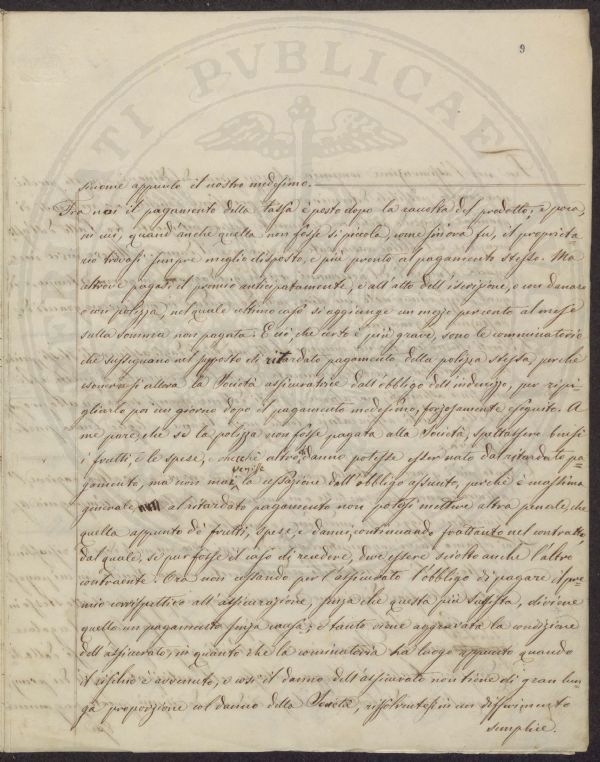 9
siccome appunto il nostro medesimo.
Tra noi il pagamento della tassa è posto dopo la raccolta del prodotto, e però,
in cui, quand'anche quella non fosse sì piccola, come finora fu, il proprieta=
rio trovasi sempre meglio disposto, e più pronto al pagamento stesso. Ma
altrove pagasi il premio anticipatamente, e all'atto dell'iscrizione, o con danaro
o con polizza, nel quale ultimo caso si aggiunge un mezzo per cento al mese
sulla somma non pagata. E ciò, che certo è più grave, sono le comminatorie
che susseguano nel supposto di ritardato pagamento della polizza stessa, perchè
esonerasi allora la Società assicuratrice dall'obbligo dell'indennizzo, per ripi=
gliarlo poi un giorno dopo il pagamento medesimo, forzosamente eseguito. A
me pare, che se la polizza non fosse pagata alla Società, spettassero bensì
i frutti, e le spese, e anche altro danno potesse esser nato dal ritardato pa=
gamento, ma non mai venisse la cessazione dell'obbligo assunto, perchè è massima
generale al ritardato pagamento non potersi mettere altra penale, che
quella appunto de' frutti, spese, e danni, continuando frattanto nel contratto,
dal quale, se pur fosse il caso di recedere, deve essere sciolto anche l'altro
contraente. Ora non cessando per l'assicurato l'obbligo di pagare il pre=
mio corrispettivo all'assicurazione, senza che questa più sussista, diviene
quello un pagamento senza causa; e tanto viene aggravata la condizione
dell'assicurato, in quanto che la cominatoria ha luogo appunto quando
il rischio è avvenuto, e così il danno dell'assicurato non tiene di gran lun=
ga proporzione col danno della Società, risolventesi in un differimento
semplice.
PVBLICAE